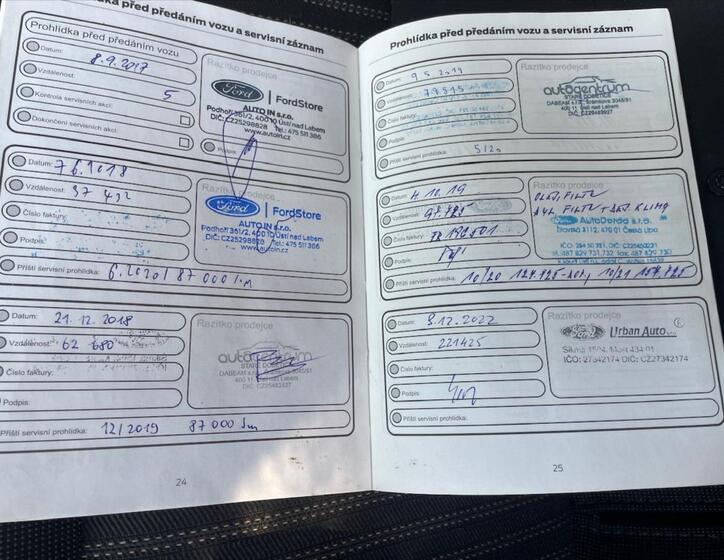 Prohlídka před předáním vozu a servisní záznam
Prohlídka před předáním vozu
Datum: 8.9.2017
Vzdálenost: 5
Kontrola servisních akcí:
Dokončení servisních akcí:
Razítko prodejce
Ford FordStore
AUTO IN s.r.o.
Podhoří 361/2, 400 10 Ústí nad Labem
DIČ: CZ25298828 Tel.: 475 511 386
www.autoin.cz
Podpis:
Datum: 7.6.2018
Vzdálenost: 37 492
Číslo faktury:
Podpis:
Příští servisní prohlídka: 6.2020/87 000 km
Razítko prodejce
Ford FordStore
AUTO IN s.r.o.
Podhoří 361/2, 400 10 Ústí nad Labem
DIČ: CZ25298828 Tel.: 475 511 386
www.autoin.cz
Datum: 21.12.2018
Vzdálenost: 62 680
Číslo faktury:
Podpis:
Příští servisní prohlídka: 12/2019 87 000 km
Razítko prodejce
autocentrum
400 11 Ústí nad Labem
24
Prohlídka před předáním vozu a servisní záznam
Datum: 9.5.2019
Vzdálenost: 79515
Číslo faktury:
Podpis:
Příští servisní prohlídka:
Razítko prodejce
autocentrum
Datum: 4.10.19
Vzdálenost: 97.725
Číslo faktury:
Podpis:
Příští servisní prohlídka: 10/20 127.725
Razítko prodejce
OLEJ, FILTR
Ford AutoDorda s.r.o.
Datum: 5.12.2022
Vzdálenost: 221425
Číslo faktury:
Podpis:
Příští servisní prohlídka:
Razítko prodejce
Ford Urban Auto
IČO: 27342174 DIČ: CZ27342174
25